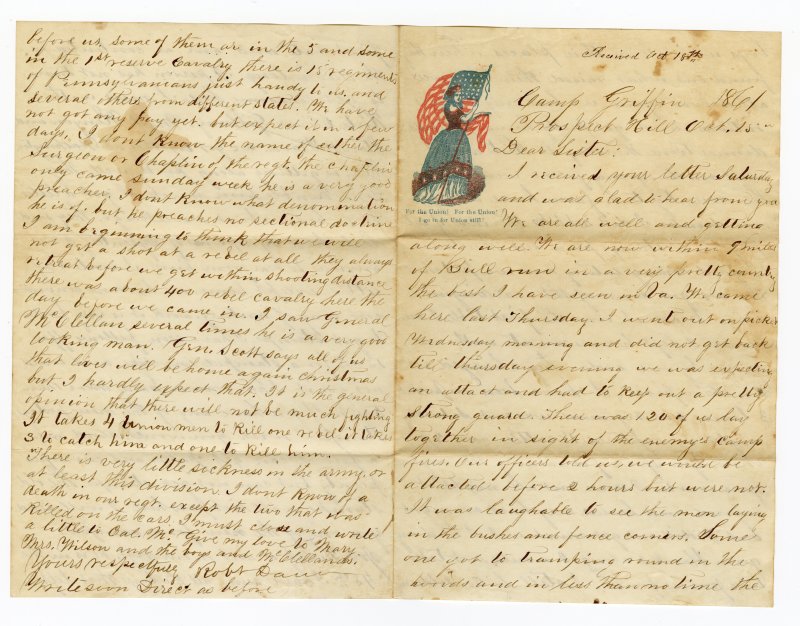 Received Oct. 18th
Camp Griffin 1861
Prospect Hill Oct. 15th
Dear Sister:
I received your letter Saturday
and was glad to hear from you
We are all well and getting
along well. We are now within 9 miles
of Bull run in a very pretty country
the best I have seen in Va. We came
here last Thursday. I went out on picket
Wednesday morning and did not get back
till thursday evening we was expecting
an attact and had to keep out a pretty
strong guard. There was 120 of us lay
together in sight of the enemy's camp
fires. Our officers told us we would be
attacted before 2 hours but were not.
It was laughable to see the men laying
in the bushes and fence corners. Some
one got to tramping round in the
woods and in less than no time the
For the Union! For the Union!
I go in for Union still!
before us. some of them are in the 5 and some
in the 1st reserve Cavalry there is 15 regiments
of Pennsylvanians just handy to us, and
several others from different states. We have
not got any pay yet. but expect it in a few
days. I dont know the name of either the
Surgeon or Chaplin of the regt. the chaplin
only came sunday week he is a very good
preacher, I dont know what denomination
he is of, but he preaches no sectional doctrine
I am beginning to think that we will
not get a shot at a rebel at all they always
retreat before we get within shooting distance
there was about 400 rebel cavalry here the
day before we came in. I saw General
McClellan several times he is a very good
looking man. Gen. Scott says all of us
that lives will be home again christmas
but I hardly expect that. It is the general
opinion that there will not be much fighting
It takes 4 Union men to kill one rebel. it takes
3 to catch him and one to kill him.
There is very little sickness in the army, or
at least this division. I dont know of a
death in our regt. except the two that was
killed on the cars. I must close and write
a little to Cal. Mc Give my love to Mary
Mrs. Wilson and the boys and McClellands.
Yours respectfully Robt
Write soon Direct as before